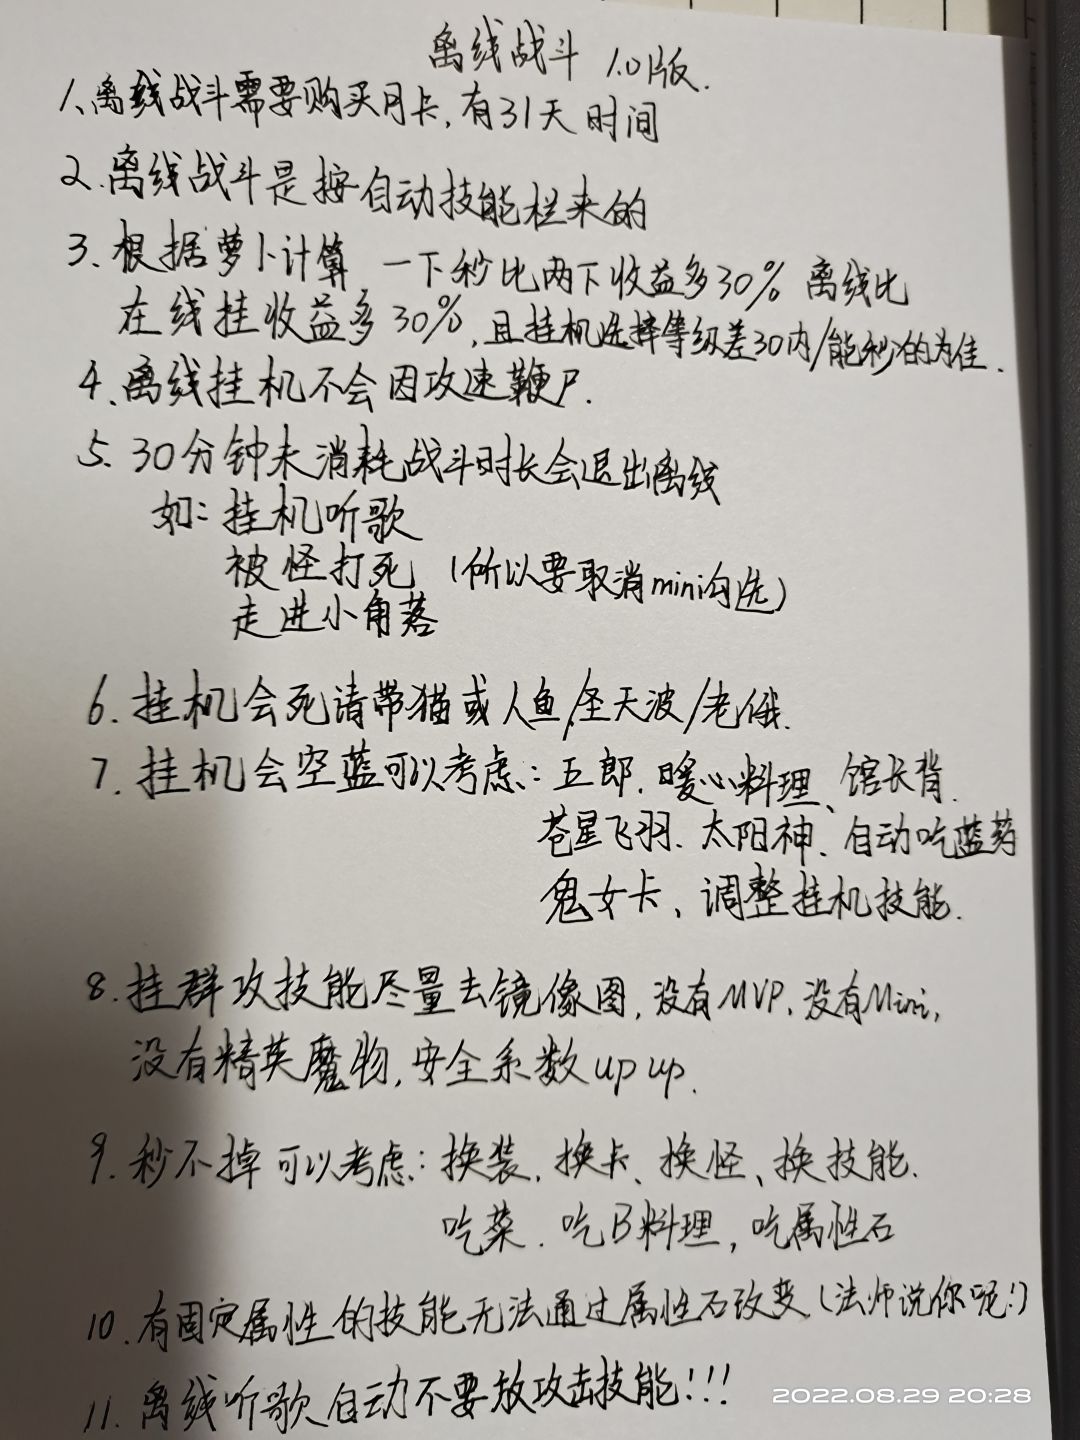 离线战斗 1.01版.
1、离线战斗需要购买月卡,有31天时间
2.离线战斗是按自动技能栏来的
3、根据萝卜计算,一下秒比两下收益多30% 离线比
在线挂收益多30%,且挂机选择等级差30内/能秒的为佳.
4、离线挂机不会因攻速鞭尸.
5、30分钟未消耗战斗时长会退出离线
如:挂机听歌
被怪打死 (所以要取消mini勾选)
走进小角落
6.挂机会死请带猫或人鱼/圣天波/老俄.
7.挂机会空蓝可以考虑:五郎.暖心料理、馆长背.
苍星飞羽.太阳神、自动吃蓝药
鬼女卡、调整挂机技能.
8.挂群攻技能尽量去镜像图,没有MVP.没有Mini,
没有精英魔物,安全系数up up.
9.秒不掉可以考虑:换装.换卡、换怪、换技能.
吃菜.吃B料理,吃属性石
10.有固定属性的技能无法通过属性石改变(法师说你呢!)
11.离线听歌自动不要放攻击技能!!!
2022.08.29 20:28